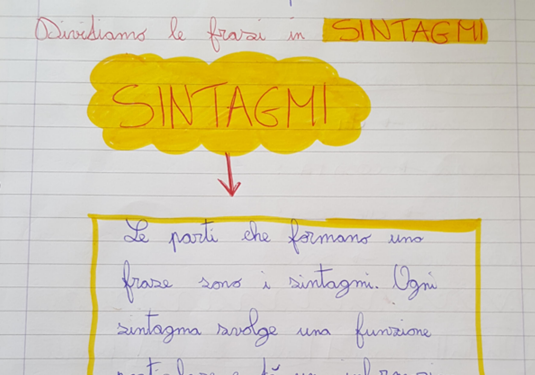 Dividiamo le frasi in SINTAGMI
SINTAGMI
Le parti che formano una
frase sono i sintagmi. Ogni
sintagma svolge una funzione